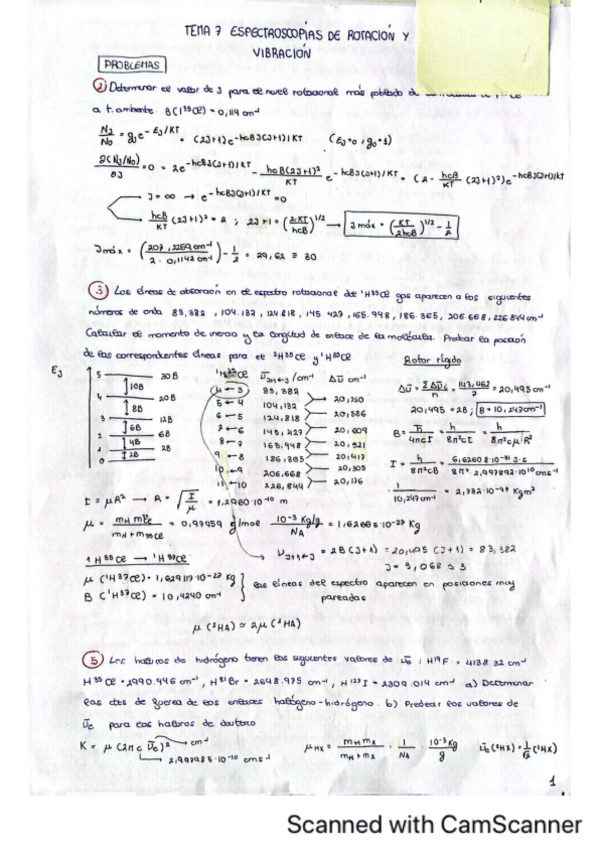 TEMA 7 ESPECTROSCOPÍAS DE ROTACIÓN Y
VIBRACIÓN
PROBLEMAS
Determinar el valor de J para el nivel rotacional más poblado de
a t. ambiente. B(I³⁵Cl) = 0,114 cm⁻¹
NJ/N0 = gJ e^(-EJ/KT) = (2J+1) e^(-hcBJ(J+1)/KT) (E0=0, g0=1)
∂(NJ/N0)/∂J = 0 = 2e^(-hcBJ(J+1)/KT) - hcB(2J+1)²/KT e^(-hcBJ(J+1)/KT) = (2 - hcB/KT (2J+1)²) e^(-hcBJ(J+1)/KT)
J = ∞ → e^(-hcBJ(J+1)/KT) = 0
hcB/KT (2J+1)² = 2 ; 2J+1 = (2KT/hcB)^(1/2) → J máx = (KT/2hcB)^(1/2) - 1/2
J máx = (207,2269 cm⁻¹ / 2 · 0,1142 cm⁻¹) - 1/2 = 29,62 ≅ 30
③ Las líneas de absorción en el espectro rotacional de ¹H³⁵Cl gas aparecen a los siguientes
números de onda 83,382, 104.132, 124.818, 145.427, 165.948, 186.365, 206.668, 226.844 cm⁻¹
Calcular el momento de inercia y la longitud de enlace de la molécula. Predecir la posición
de las correspondientes líneas para el ²H³⁵Cl y ¹H³⁷Cl
Rotor rígido
EJ
5 30B
10B
4 20B
8B
3 12B
6B
2 6B
4B
1 2B
0 2B
¹H³⁵Cl ν̄J+1←J /cm⁻¹ Δν̄ cm⁻¹
(4←3) 83,382
5←4 104,132 20,750
6←5 124,818 20,686
7←6 145,427 20,609
8←7 165,948 20,521
9←8 186,365 20,417
10←9 206,668 20,303
11←10 226,844 20,176
Δν̄ = ΣΔν̄i/n = 143,462/7 = 20,495 cm⁻¹
20,495 = 2B ; B = 10,247 cm⁻¹
B = ħ/4πcI = h/8π²cI = h/8π²cμR²
I = h/8π²cB = 6,6260 8·10⁻³⁴ J·s / 8π² · 2,997892·10¹⁰ cm s⁻¹
· 1/10,247 cm⁻¹ = 2,732·10⁻⁴⁷ Kgm²
I = μR² → R = √(I/μ) = 1,2960·10⁻¹⁰ m
μ = mH m³⁵Cl / mH + m³⁵Cl = 0,97959 g/mol · 10⁻³ Kg/g / NA = 1,62665·10⁻²⁷ Kg
νJ+1←J = 2B(J+1) = 20,495 (J+1) = 83,382
J = 3,068 ≅ 3
1H³⁵Cl → ¹H³⁷Cl
μ (¹H³⁷Cl) = 1,62917·10⁻²⁷ Kg
B (¹H³⁷Cl) = 10,4240 cm⁻¹
Las líneas del espectro aparecen en posiciones muy
pareadas
μ (²HA) ≃ 2μ (¹HA)
⑤ Los haluros de hidrógeno tienen los siguientes valores de ν̄0 : H¹⁹F = 4138.32 cm⁻¹
H³⁵Cl = 2990.946 cm⁻¹, H⁸¹Br = 2648.975 cm⁻¹, H¹²⁷I = 2309.014 cm⁻¹ a) Determinar
las ctes de fuerza de los enlaces halógeno-hidrógeno. b) Predecir los valores de
ν̄0 para los haluros de deuterio
K = μ (2πc ν̄0)² → cm⁻¹
μHX = mH mX / mH + mX · 1/NA · 10⁻³ Kg/g
ν̄0(²HX) = 1/√2 (¹HX)
1
Scanned with CamScanner